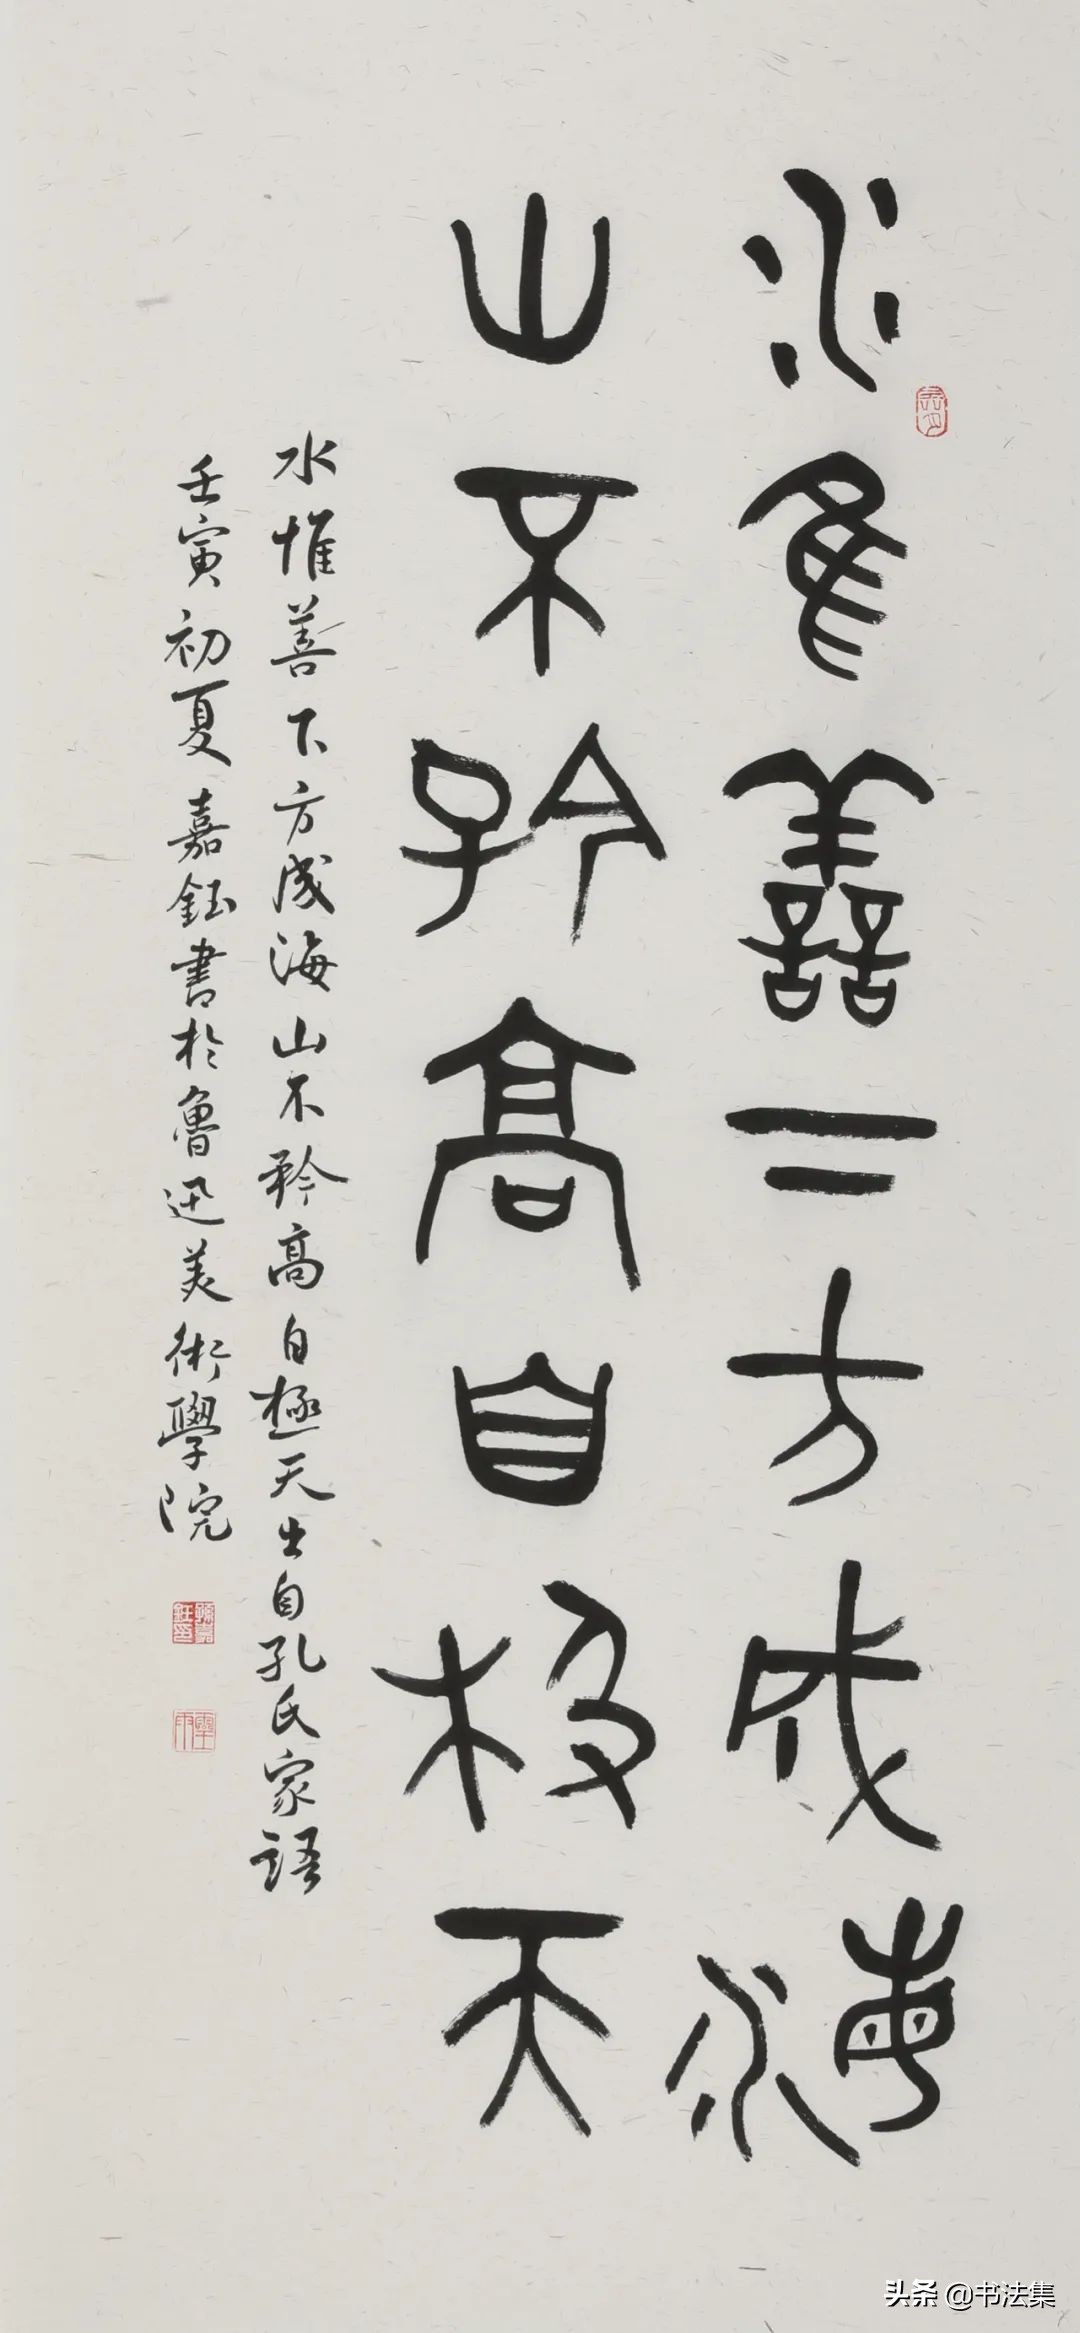 水隹善二方成海
山不矜高自极天
水惟善下方成海山不矜高自極天出自孔氏家語
壬寅初夏嘉鈺書於魯迅美術學院
头条 @书法集